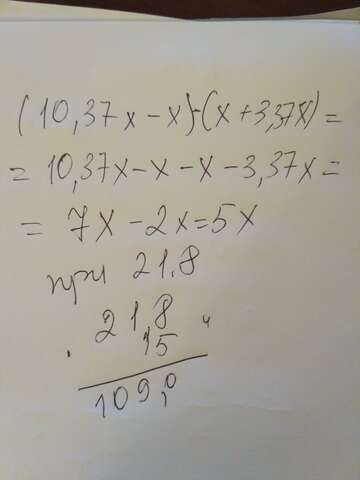 (10,37x - x) - (x + 3,37x) =
= 10,37x - x - x - 3,37x =
= 7x - 2x = 5x
при 21.8
21,8
15
109,0